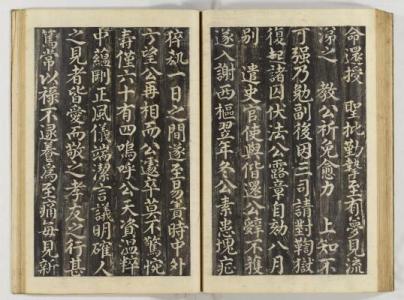 命還授 聖批勤摯至有夢見流
涕之 教公祈免愈力 上知不
可强乃勉副後因三司請對鞫獄
復起諸囚伏法公露章自劾八月
別 遣史官使與偕還公辭不獲
遂入謝西樞翌年冬公素患塊
猝 一日之間遂至易簀時中外
方望公再相而公遽卒莫不驚惋
壽僅六十有四嗚呼公天資溫粹
中蘊剛正風儀端潔言議明確人
之見者皆愛而敬之孝友之行甚
篤常以祿不逮養爲至痛每見新